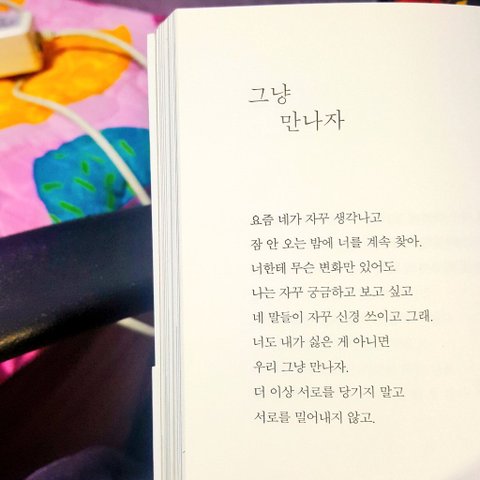 그냥
만나자
요즘 네가 자꾸 생각나고
잠 안 오는 밤에 너를 계속 찾아.
너한테 무슨 변화만 있어도
나는 자꾸 궁금하고 보고 싶고
네 말들이 자꾸 신경 쓰이고 그래.
너도 내가 싫은 게 아니면
우리 그냥 만나자.
더 이상 서로를 당기지 말고
서로를 밀어내지 않고.